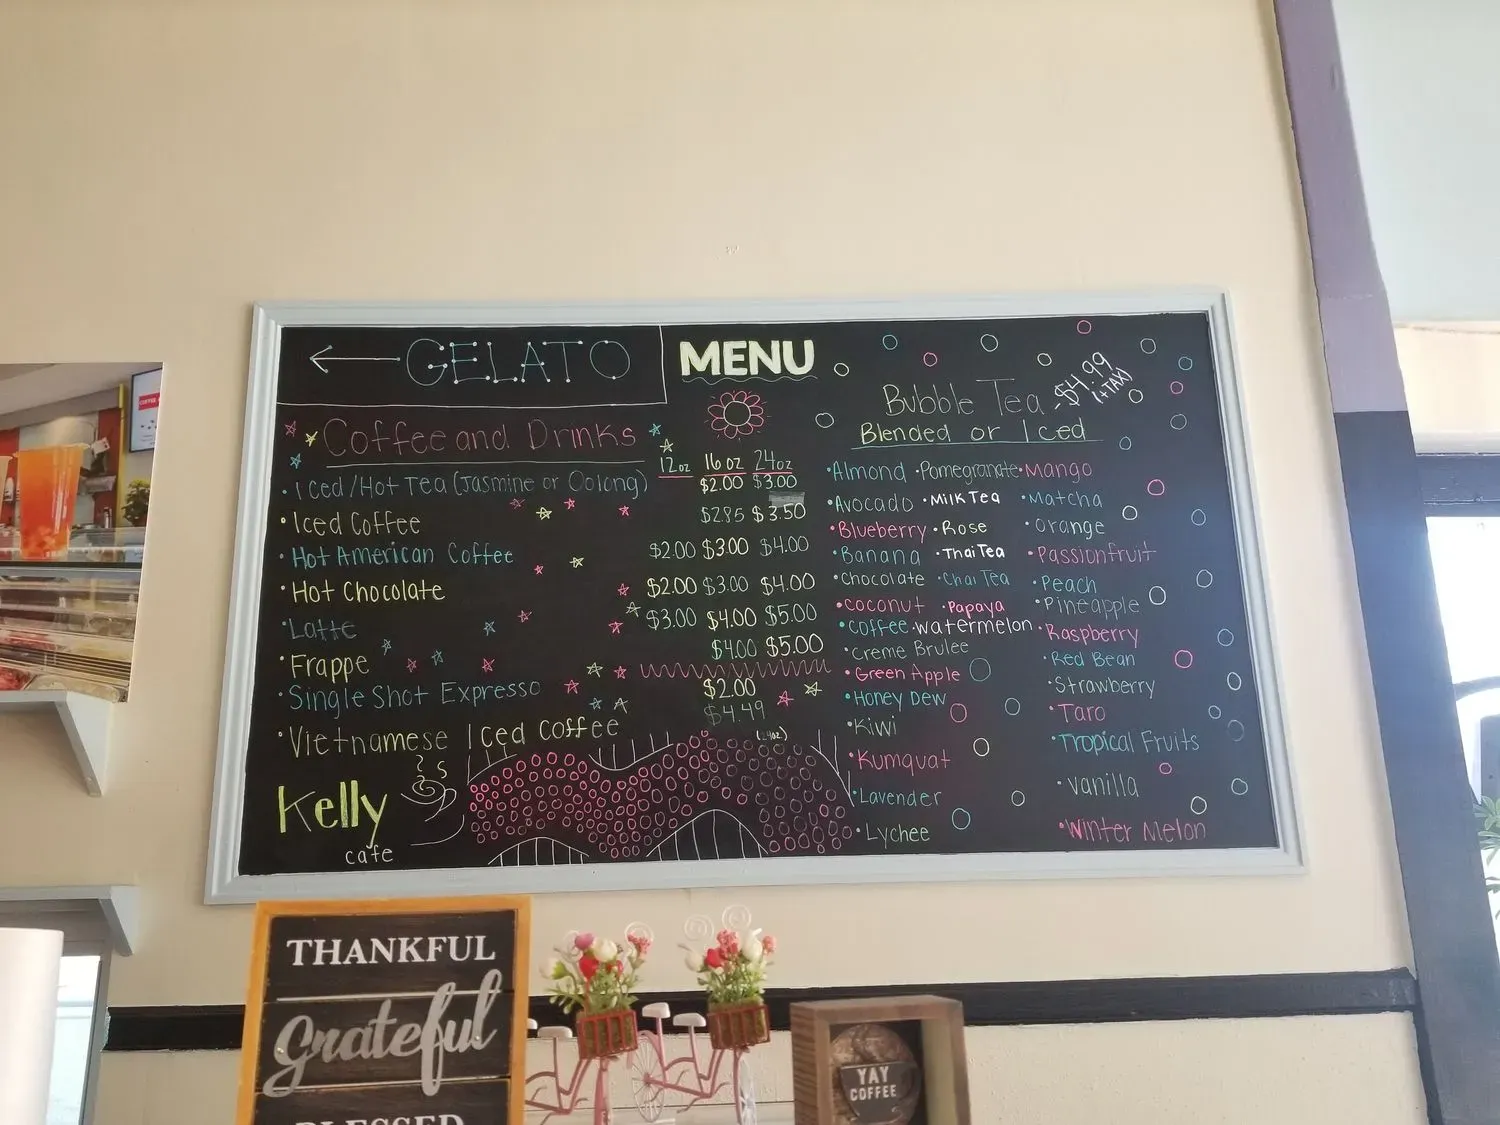 ← GELATO
MENU
Coffee and Drinks
12oz 16oz 24oz
• Iced/Hot Tea (Jasmine or Oolong) $2.00 $3.00
• Iced Coffee $2.85 $3.50
• Hot American Coffee $2.00 $3.00 $4.00
• Hot Chocolate $2.00 $3.00 $4.00
• Latte $3.00 $4.00 $5.00
• Frappe $4.00 $5.00
• Single Shot Expresso $2.00
• Vietnamese Iced Coffee $4.49
(24oz)
Kelly
cafe
Bubble Tea - $4.99
(+TAX)
Blended or Iced
• Almond • Pomegranate • Mango
• Avocado • Milk Tea • Matcha
• Blueberry • Rose • Orange
• Banana • Thai Tea • Passionfruit
• Chocolate • Chai Tea • Peach
• Coconut • Papaya • Pineapple
• Coffee • Watermelon • Raspberry
• Creme Brulee • Red Bean
• Green Apple • Strawberry
• Honey Dew • Taro
• Kiwi • Tropical Fruits
• Kumquat • Vanilla
• Lavender • Winter Melon
• Lychee
THANKFUL
Grateful
BLESSED
YAY
COFFEE